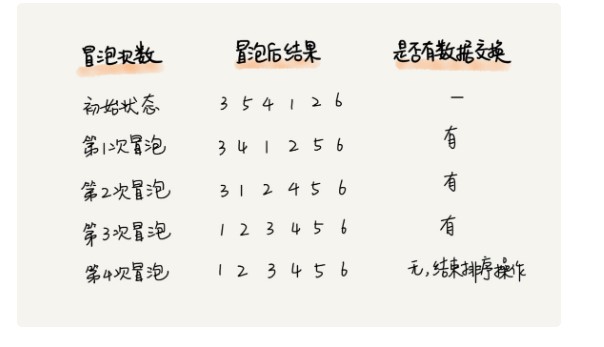 冒泡次数 冒泡后结果 是否有数据交换
初始状态 3 5 4 1 2 6 —
第1次冒泡 3 4 1 2 5 6 有
第2次冒泡 3 1 2 4 5 6 有
第3次冒泡 1 2 3 4 5 6 有
第4次冒泡 1 2 3 4 5 6 无,结束排序操作